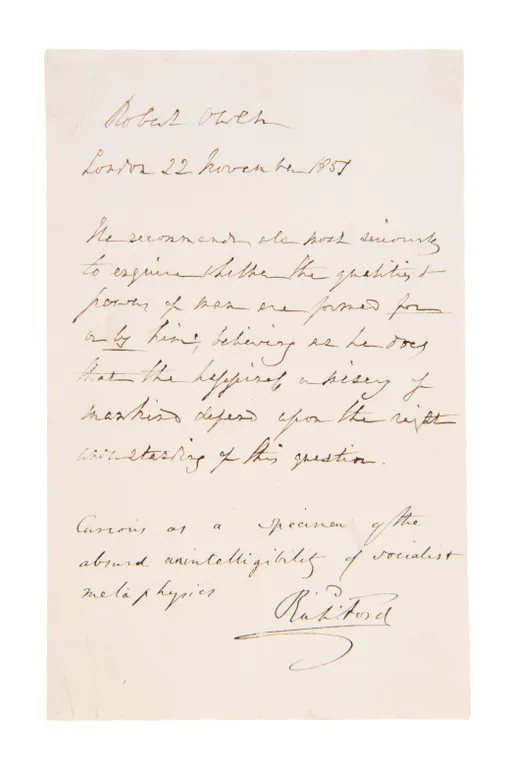 Robert Owen
London 22 November 1851
He recommends all most seriously
to enquire whether the qualities &
powers of man are formed for
or by him; believing as he does
that the happiness or misery of
mankind depend upon the right
understanding of this question.
Curious as a specimen of the
absurd unintelligibility of socialist
metaphysics
Richd Ford